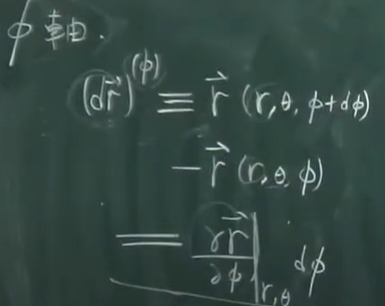 φ 軸.
(d\vec{r})^{(φ)} ≡ \vec{r} (r, θ, φ+dφ)
− \vec{r} (r, θ, φ)
= \frac{∂\vec{r}}{∂φ}|_{r, θ} dφ